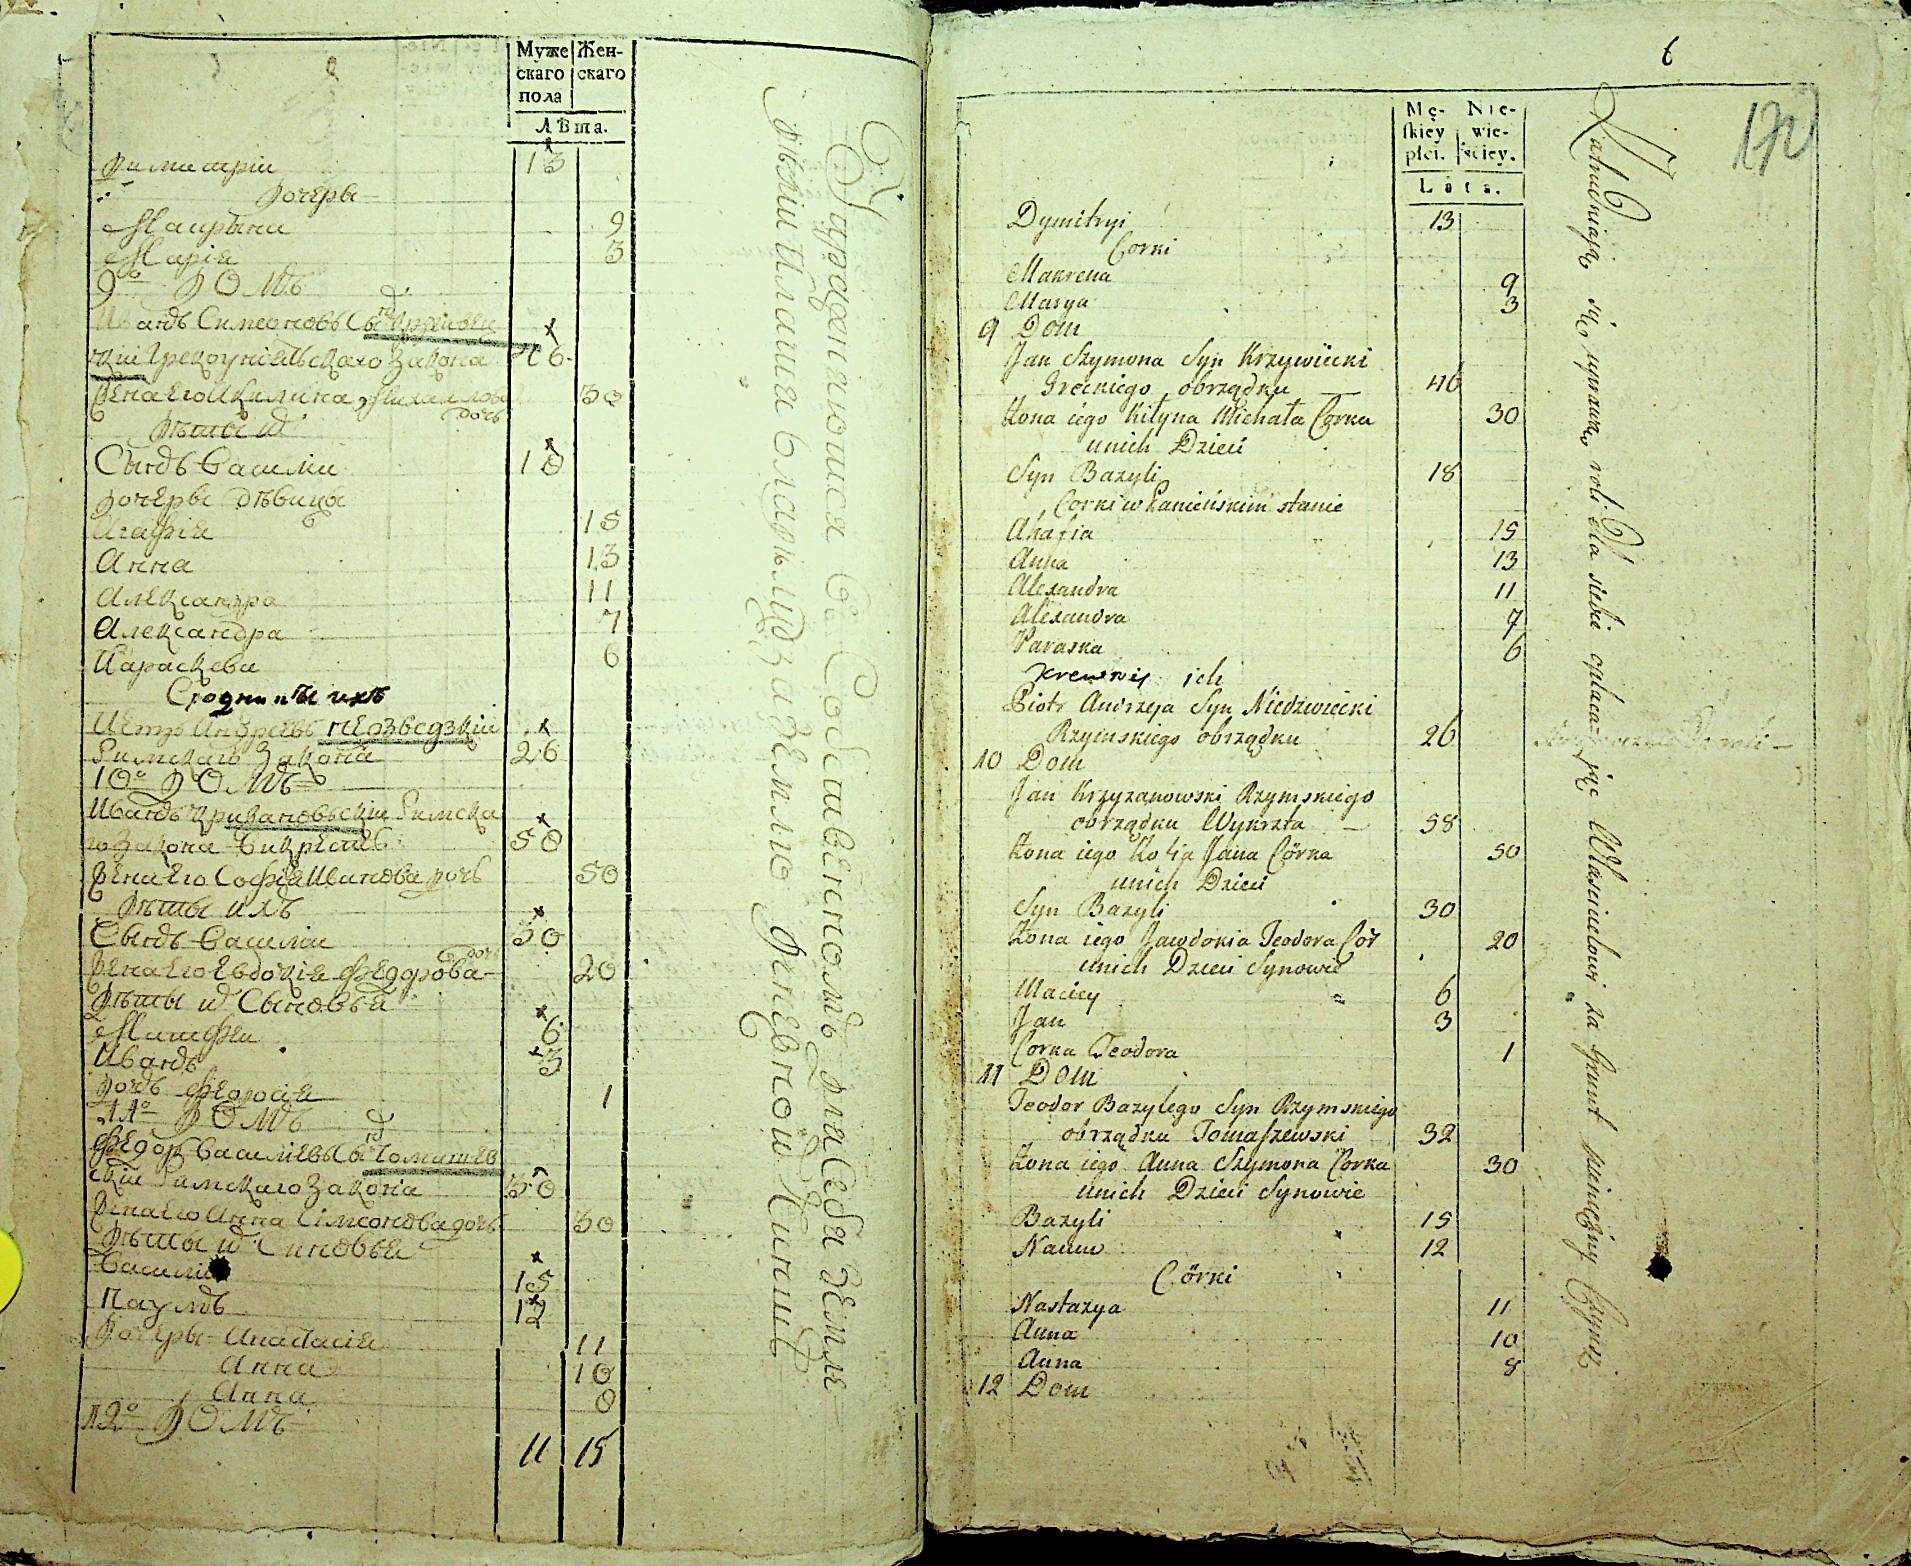 Муже
скаго
пола
Жен-
скаго
Лѣта.
Димитрiи 13
Дочерь
Маирына 9
Марiя 3
9о ДОМЪ
Иванъ Симеоновъ Сынъ
кiи Грекоунiятскаго Закона 46
Жена Его Михайлова дочь 30
Дѣти ихъ
Сынъ Василiи 18
Дочерьи Дѣвицы
Агафiя 15
Анна 13
Александра 11
Александра 7
Параскева 6
Сродники ихъ
Петръ Андреевъ Недзведзкiи
Римскаго Закона 26
10о ДОМЪ
Иванъ Крижановьскiи Римска
го Закона Викрестъ 58
Жена Его Софiя Иванова дочь 50
Дѣти ихъ
Сынъ Василiи 30
Жена Его Евдокiя Федорова дочь 20
Дѣти ихъ Сыновья
Матфеи 6
Иванъ 3
Дочь Феодосiя 1
11о ДОМЪ
Федоръ Василiевъ Сынъ Томашев
скiи Римскаго Закона 30
Жена Его Анна Симеонова дочь 30
Дѣти ихъ Синовья
Василiи 15
Наумъ 12
Дочерьи Анастасiя 11
Анна 10
Анна 8
12о ДОМЪ
11 15
Въ Собственномъ для Себя Земле
дѣлiи плотя владѣлцу за Землю денежнои Чиншъ
6
172
Mę-
skiey
płci.
Nie-
wie-
sciey.
Lata.
Dymitryi 13
Corki
Makrena 9
Marya 3
9 Dom
Jan Szymona Syn Krzywicki
Greckiego obrządku 46
Żona iego Kilyna Michała Corka 30
unich Dzieci
Syn Bazyli 18
Corki w Panieńskim stanie
Ahafia 15
Anna 13
Alexandra 11
Alexandra 7
Paraska 6
Krewny ich
Piotr Andrzeja Syn Niedzwiecki
Rzymskiego obrządku 26
10 Dom
Jan Krzyzanowski Rzymskiego
obrządku Wykrzta 58
Żona iego Zofia Jana Córka 50
unich Dzieci
Syn Bazyli 30
Żona iego Jawdokia Teodora Cór 20
unich Dzieci Synowie
Maciey 6
Jan 3
Corka Teodora 1
11 Dom
Teodor Bazylego Syn Rzymskiego
obrządku Tomaszewski 32
Żona iego Anna Szymona Corka 30
unich Dzieci Synowie
Bazyli 15
Naum 12
Córki
Nastazya 11
Anna 10
Anna 8
12 Dom
Zatrudniają się uprawą roli dla siebie opłacając Właścicielowi za Grunt pieniężny Czynsz